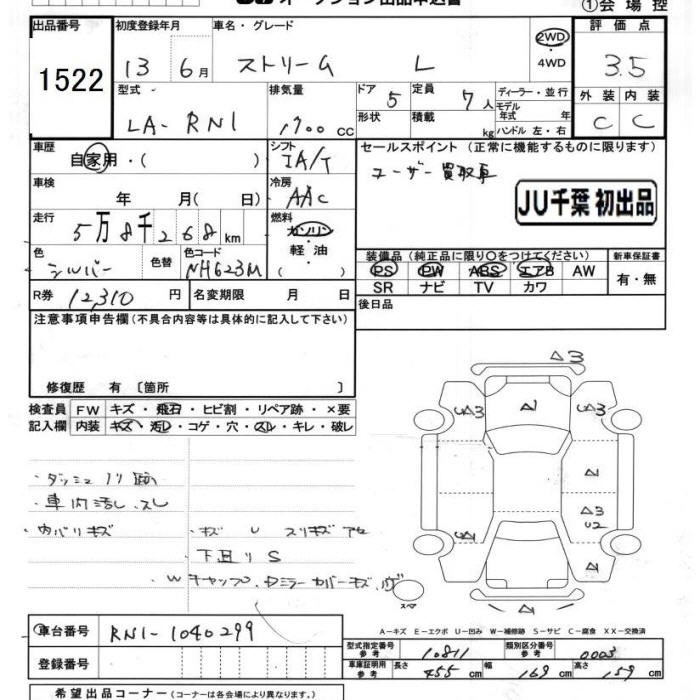 オークション出品申込書
①会場控
出品番号 初度登録年月 車名・グレード 評価点
1522
13 6月 ストリーム L 2WD・4WD 3.5
型式 排気量 ドア 定員 ディーラー・並行 外装 内装
LA-RN1 1700cc 5 7人 モデル年式 年 C C
形状 積載 kg ハンドル 左・右
車歴 シフト セールスポイント (正常に機能するものに限ります)
自家用・( ) IA/T ユーザー買取車
車検 冷房
年 月( 日) AAC
JU千葉 初出品
走行 燃料
5万8千268km ガソリン・軽油
装備品 (純正品に限り○をつけてください) 新車保証書
色 色替 色コード
シルバー NH623M
PS PW ABS エアB AW 有・無
SR ナビ TV カワ
R券 12,310円 名変期限 月 日
後日品
注意事項申告欄(不具合内容等は具体的に記入して下さい)
修復歴 有 〔箇所 〕
△3
検査員 FW キズ・飛石・ヒビ割・リペア跡・×要
記入欄 内装 キズ・汚レ・コゲ・穴・スレ・キレ・破レ
・ダッシュノリ跡
・車内汚レ、スレ
・内バリキズ
・キズ U スリキズ
下廻りS
スペア
A−キズ E−エクボ U−凹み W−補修跡 S−サビ C−腐食 XX−交換済
車台番号 RN1-1040299
登録番号
型式指定番号参考 10811 類別区分番号参考 0003
車庫証明用参考 長さ 455cm 幅 169cm 高さ 159cm
希望出品コーナー(コーナーは各会場により異なります。)